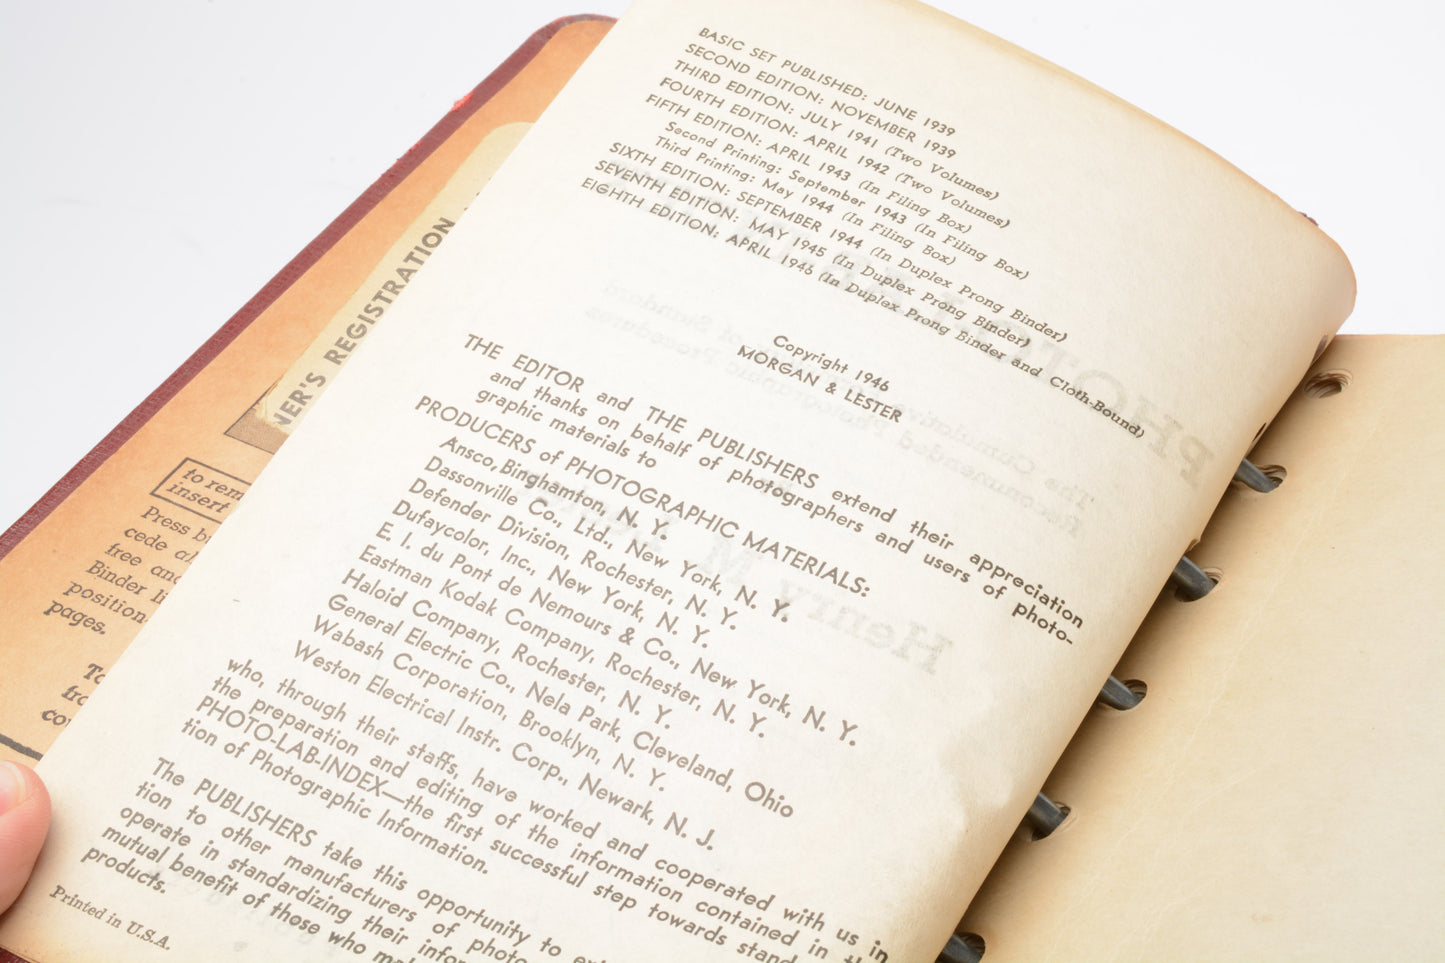 BASIC SET PUBLISHED: JUNE 1939
SECOND EDITION: NOVEMBER 1939
THIRD EDITION: JULY 1941 (Two Volumes)
FOURTH EDITION: APRIL 1942 (Two Volumes)
FIFTH EDITION: APRIL 1943 (In Filing Box)
Second Printing: September 1943 (In Filing Box)
Third Printing: May 1944 (In Filing Box)
SIXTH EDITION: SEPTEMBER 1944 (In Duplex Prong Binder)
SEVENTH EDITION: MAY 1945 (In Duplex Prong Binder)
EIGHTH EDITION: APRIL 1946 (In Duplex Prong Binder and Cloth-Bound)
Copyright 1946
MORGAN & LESTER
THE EDITOR and THE PUBLISHERS extend their appreciation
and thanks on behalf of photographers and users of photo-
graphic materials to
PRODUCERS of PHOTOGRAPHIC MATERIALS:
Ansco, Binghamton, N. Y.
Dassonville Co., Ltd., New York, N. Y.
Defender Division, Rochester, N. Y.
Dufaycolor, Inc., New York, N. Y.
E. I. du Pont de Nemours & Co., New York, N. Y.
Eastman Kodak Company, Rochester, N. Y.
Haloid Company, Rochester, N. Y.
General Electric Co., Nela Park, Cleveland, Ohio
Wabash Corporation, Brooklyn, N. Y.
Weston Electrical Instr. Corp., Newark, N. J.
who, through their staffs, have worked and cooperated with us in
the preparation and editing of the information contained in the
PHOTO-LAB-INDEX—the first successful step towards
tion of Photographic Information.
The PUBLISHERS take this opportunity to
tion to other manufacturers of
operate in standardizing their
mutual benefit of those who
products.
Printed in U.S.A.
REGISTRATION
to
insert
Press
cede
free and
Binder
position
pages.